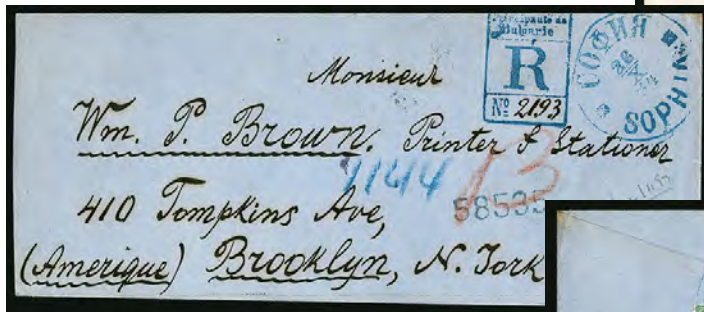 Principauté de
Bulgarie
R
№ 2193
СОФИЯ
SOPHIA
Monsieur
Wm. P. Brown. Printer & Stationer
1144 13
410 Tompkins Ave,
(Amerique) Brooklyn, N. York